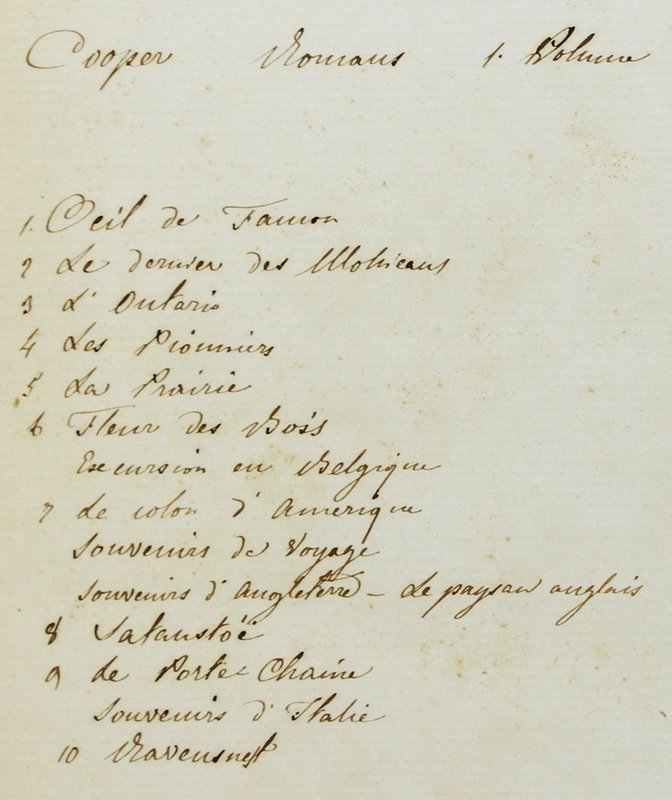 Cooper Romans 1. Volume
1. Oeil de Faucon
2 Le dernier des Mohicans
3 L'Ontario
4 Les Pionniers
5 La Prairie
6 Fleur des Bois
Excursion en Belgique
7 Le colon d'Amerique
Souvenirs de Voyage
Souvenirs d'Angleterre – Le paysan anglais
8 Satanstoë
9 Le Porte-Chaine
Souvenirs d'Italie
10 Ravensnest